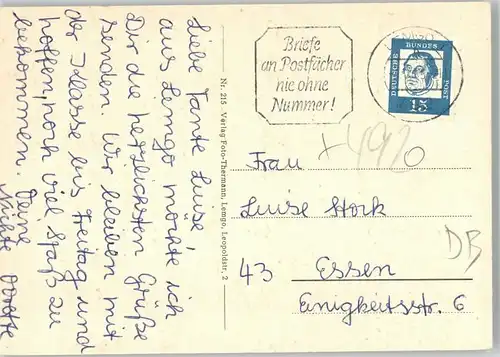 Liebe Tante Luise,
aus Lemgo möchte ich
Dir die herzlichsten Grüße
senden. Wir bleiben mit
der Klasse bis Freitag und
hoffen, noch viel Spaß zu
bekommen. Deine
Nichte
Nr. 215 Verlag Foto-Thermann, Lemgo, Leopoldstr. 2
Briefe
an Postfächer
nie ohne
Nummer!
LEMGO
DEUTSCHE BUNDES POST
15
Frau
Luise Stork
43 Essen
Einigkeitsstr. 6
DB